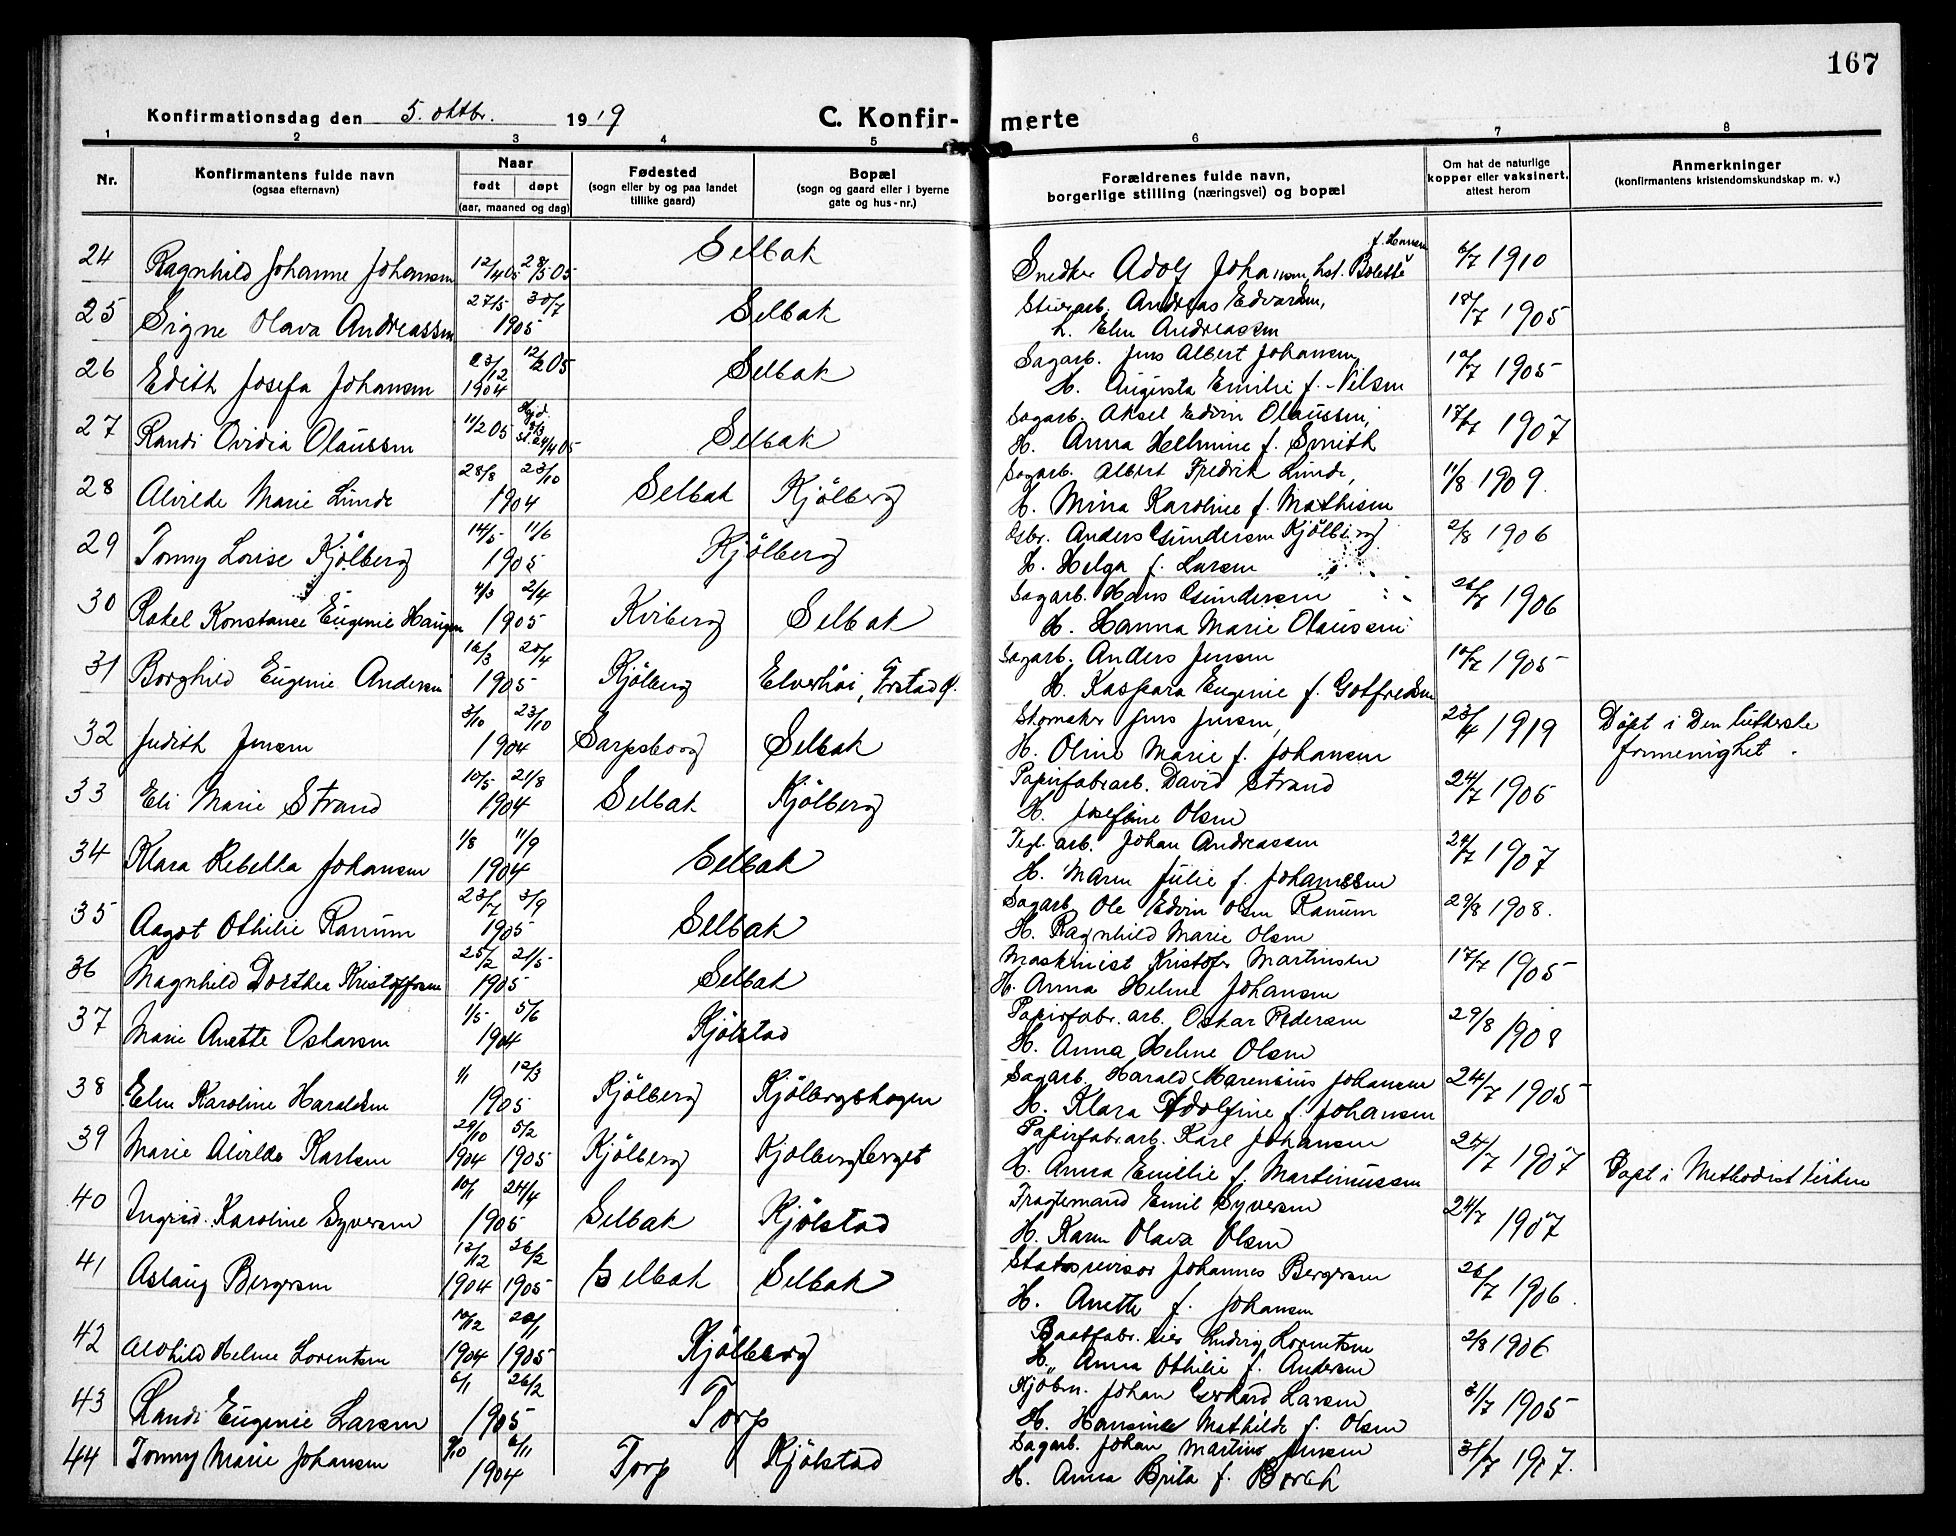 167
Konfirmationsdag den 5. oktbr. 1919 C. Konfir- merte
1 2 3 4 5 6 7 8
Nr. Konfirmantens fulde navn (ogsaa efternavn) Naar født døpt (aar, maaned og dag) Fødested (sogn eller by og paa landet tillike gaard) Bopæl (sogn og gaard eller i byerne gate og hus-nr.) Forældrenes fulde navn, borgerlige stilling (næringsvei) og bopæl Om hat de naturlige kopper eller vaksinert, attest herom Anmerkninger (konfirmantens kristendomskundskap m. v.)
24 Ragnhild Johanne Johansen 12/4 05 28/5 05 Selbak Snedker Adolf Johansen, hst. Bolette f. Hansen 6/7 1910
25 Signe Olava Andreassen 27/5 30/7 1905 Selbak Stuerarb. Andreas Edvardsen, 18/7 1905
H. Elen Andreassen
26 Edith Josefa Johansen 23/12 1904 12/2 05 Selbak Sagarb. Jens Albert Johansen 10/7 1905
H. Augusta Emilie f. Nilsen
27 Randi Ovidia Olaussen 11/2 05 Hjd. st. 24/4 05 Selbak Sagarb. Aksel Edvin Olaussen, 17/7 1907
H. Anna Helmine f. Smith
28 Alvilde Marie Lunde 28/8 23/10 1904 Selbak Kjölberg Sagarb. Albert Fredrik Lunde, 11/8 1909.
H. Mina Karoline f. Mathisen
29 Tonny Lovise Kjölberg 14/5 11/6 1905 Kjölberg Gsbr. Anders Gundersen Kjölberg 2/8 1906
H. Helga f. Larsen
30 Rakel Konstance Eugenie Haugen 4/3 2/4 1905 Kviberg Selbak Sagarb. Hans Gundersen 26/7 1906
H. Hanna Marie Olaussen
31 Borghild Eugenie Andersen 16/3 20/4 1905 Kjölberg Elverhöi, Frstad Sagarb. Anders Jensen 10/7 1905
H. Kaspara Eugenie f. Gotfredsen
32 Judith Jensen 3/10 23/10 1904 Sarpsborg Selbak Skomaker Jens Jensen, 23/4 1919 Döpt i Den lutherske
H. Oline Marie f. Johansen frimenighet.
33 Eli Marie Strand 10/5 21/8 1904 Selbak Kjölberg Papirfabrarb. David Strand 24/7 1905
H. Josefine Olsen
34 Klara Rebekka Johansen 1/8 11/9 1904 Selbak Tegl. arb. Johan Andreassen 24/7 1907
H. Maren Julie f. Johanssen
35 Aagot Othilie Ranum 23/7 3/9 1905 Selbak Sagarb. Ole Edvin Olsen Ranum 29/8 1908.
H. Ragnhild Marie Olsen
36 Magnhild Dorthea Kristoffersen 25/2 21/5 1905 Selbak Maskinist Kristofer Martinsen 17/7 1905
H. Anna Helene Johansen
37 Marie Anette Oskarsen 1/5 5/6 1904 Kjölstad Papirfabr. arb. Oskar Pedersen 29/8 1908
H. Anna Helene Olsen
38 Elen Karoline Haraldsen 1/1 12/3 1905 Kjölberg Kjölbergskogen Sagarb. Harald Marensius Johansen 24/7 1905
H. Klara Adolfine f. Johansen
39 Marie Alvilde Karlsen 29/10 1904 5/2 1905 Kjölberg Kjölbergberget Papirfabrarb. Karl Johansen 24/7 1907 Döpt i Methodistkirken
H. Anna Emilie f. Martinussen
40 Ingrid Karoline Syversen 10/1 24/4 1905 Selbak Kjölstad Fragtemand Emil Syversen 24/7 1907
H. Karen Olava Olsen
41 Aslaug Bergersen 12/12 1904 26/2 1905 Selbak Selbak Statsrevisor Johannes Bergersen 26/7 1906.
H. Anette f. Johansen
42 Alvhild Helene Lorentsen 10/12 1904 20/1 1905 Kjölberg Baatfabr. eier Ludvig Lorentsen 2/8 1906
H. Anna Othilie f. Andersen
43 Randi Eugenie Larsen 6/1 26/2 1905 Torp Kjöbm. Johan Gerhard Larsen 3/7 1905
H. Hansine Mathilde f. Olsen
44 Tonny Marie Johansen 9/10 6/11 1904 Torp Kjölstad Sagarb. Johan Martin Jensen 31/7 1907.
H. Anna Brita f. Borch